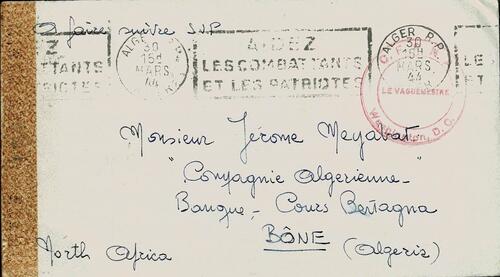 A faire suivre S.V.P
DEZ
ATTANTS
RIOTES
ALGER R.P.
30
15H
MARS
44
AIDEZ
LES COMBATTANTS
ET LES PATRIOTES
ALGER R.P.
30
15H
MARS
44
LE VAGUEMESTRE
Washington, D.C.
LES
ET
Monsieur Jérome Megavat
"Compagnie Algerienne-
Banque - Cours Bertagna
BÔNE
North Africa
(Algeria)